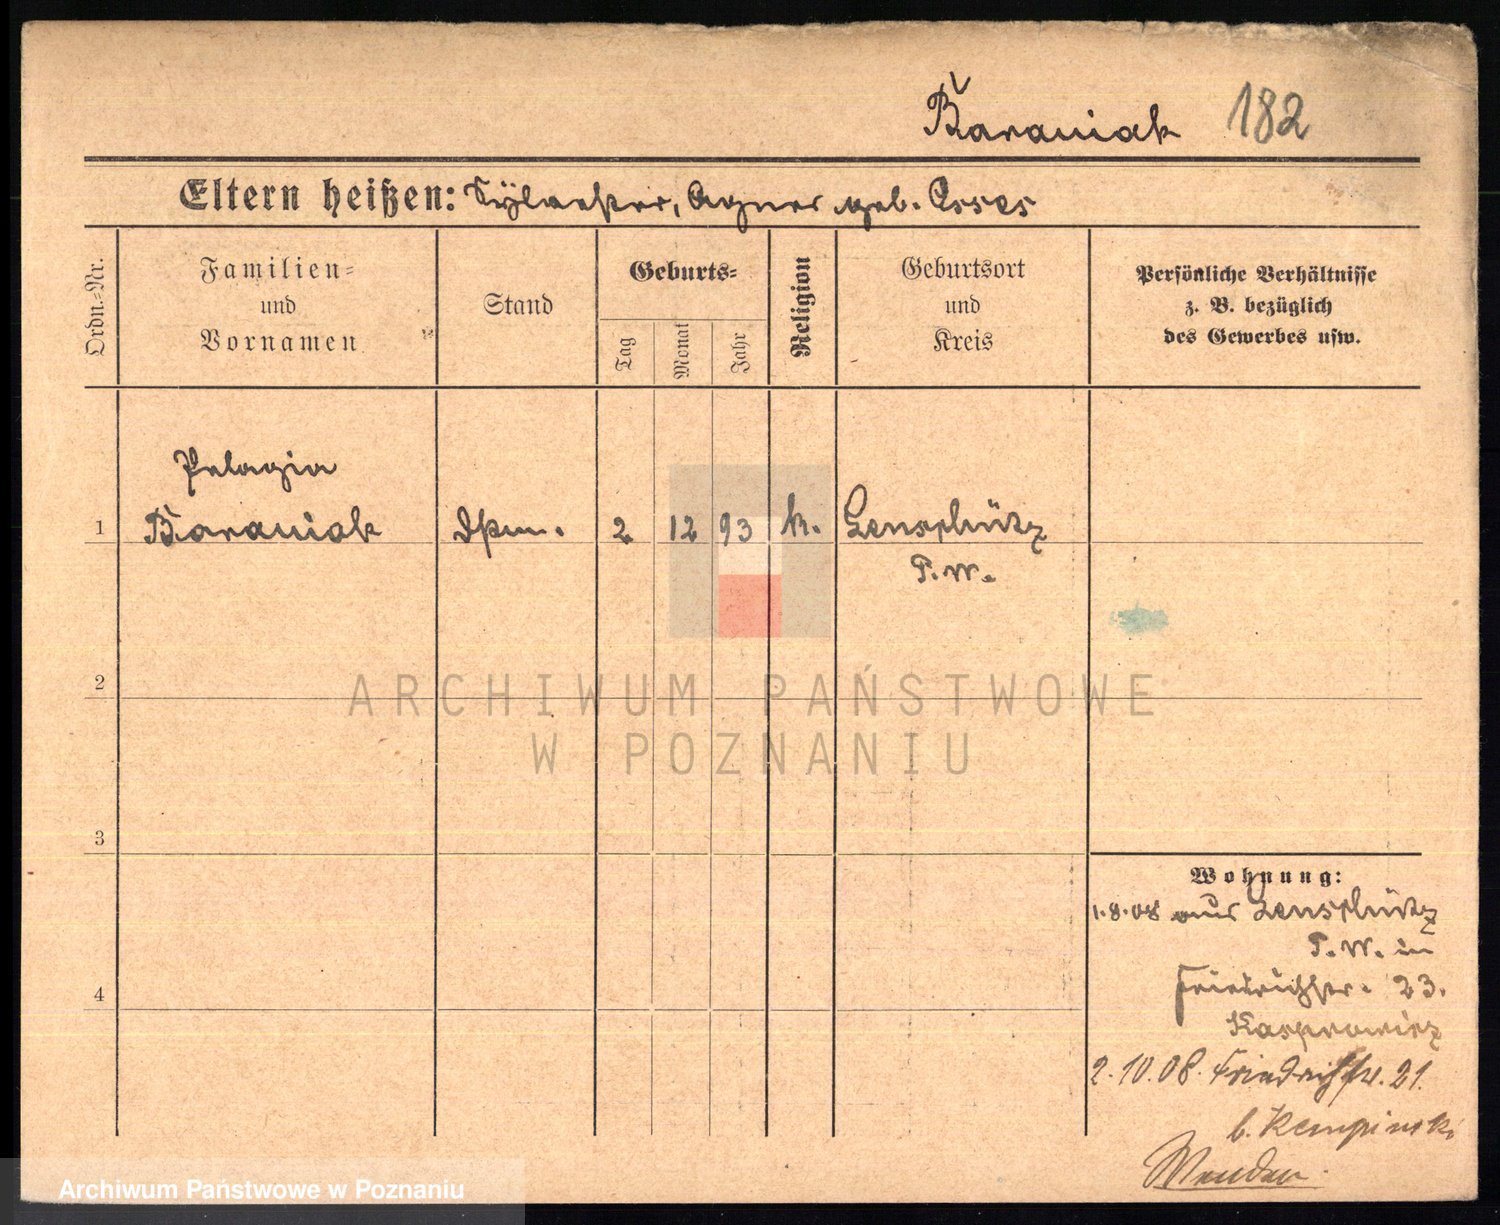 Baraniak 182
Eltern heißen: Sylvester, Agnes geb.
Ordn.-Nr.
Familien-
und
Vornamen
Stand
Geburts-
Tag
Monat
Jahr
Religion
Geburtsort
und
Kreis
Persönliche Verhältnisse
z. B. bezüglich
des Gewerbes usw.
Pelagia
1 Baraniak 2 12 93 k. Lenschütz
P. W.
2
ARCHIWUM PAŃSTWOWE
W POZNANIU
3
Wohnung:
1.8.08 aus Lenschütz
P. W. in
4
Friedrichstr. 23.
Kasprowicz
2.10.08. Friedrichstr. 21.
b. Kempinski
Archiwum Państwowe w Poznaniu